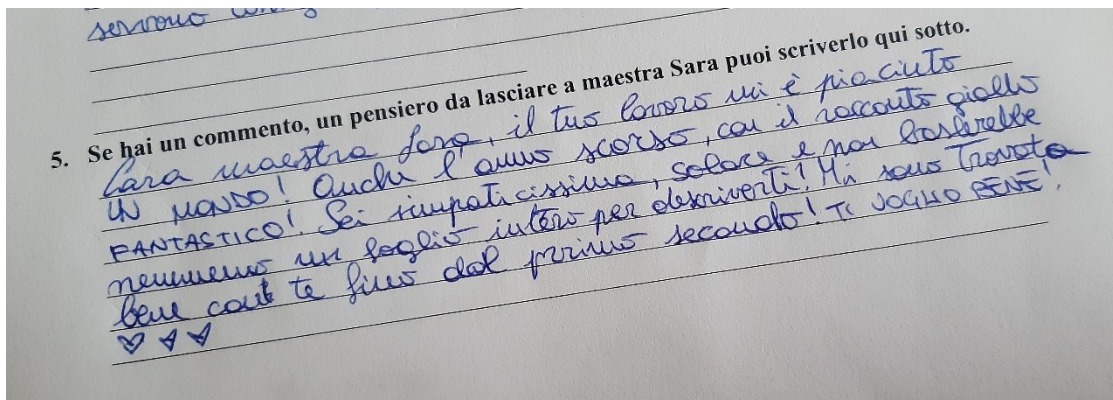 servono
5. Se hai un commento, un pensiero da lasciare a maestra Sara puoi scriverlo qui sotto.
Cara maestra Sara, il tuo lavoro mi è piaciuto
UN MONDO! Anche l'anno scorso, con il racconto giallo
FANTASTICO! Sei simpaticissima, solare e non basterebbe
nemmeno un foglio intero per descriverti! Mi sono trovata
bene con te fino dal primo secondo! TI VOGLIO BENE!
♡♡♡